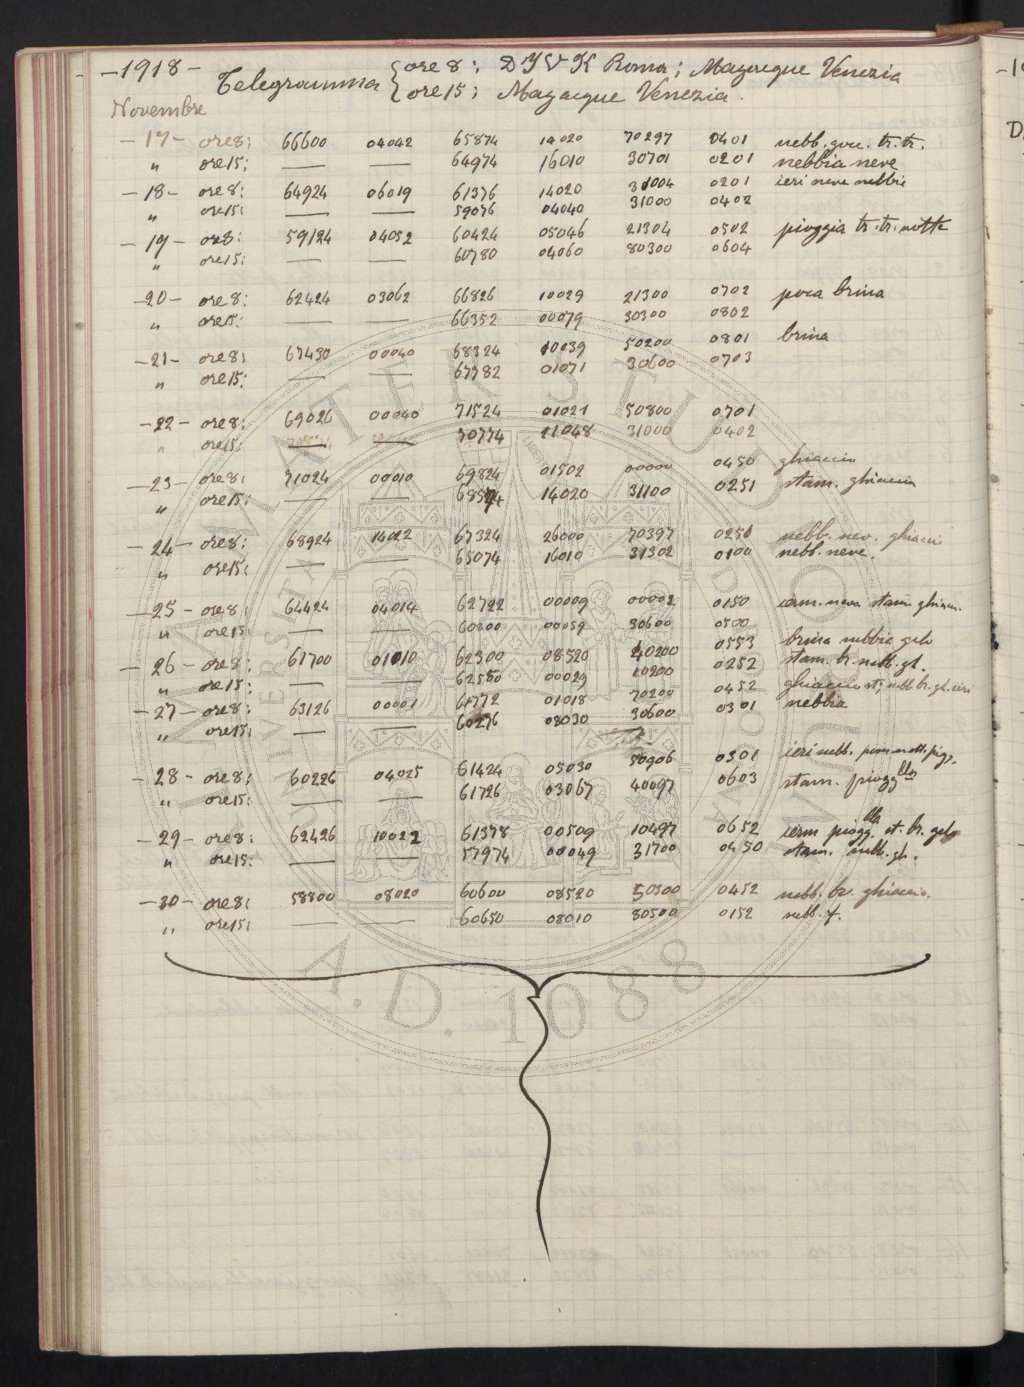 -1918-
Telegramma { ore 8: D Y V K Roma; Magacque Venezia
ore 15; Magacque Venezia.
Novembre
-17- ore 8: 66600 04042 65874 14020 70297 0401 nebb. tr. tr.
" ore 15: — — 64974 16010 30701 0201 nebbia neve
-18- ore 8: 64924 06019 61376 14020 31004 0201 ieri neve nebbia
" ore 15: — — 59076 04040 31000 0402
-19- ore 8: 59124 04052 60424 05046 21304 0502 pioggia tr. tr. notte
" ore 15: — — 60780 04060 80300 0604
-20- ore 8: 62424 03062 66826 10029 21300 0702 poca brina
" ore 15: — — 66352 00079 30300 0802
-21- ore 8: 67430 00040 68324 10039 50200 0801 brina
" ore 15: — — 67782 01071 30600 0703
-22- ore 8: 69026 00040 71524 01021 50800 0701
" ore 15: — — 70774 11048 31000 0402
-23- ore 8: 71024 00010 69824 01502 00000 0450 ghiaccio
" ore 15: — — 14020 31100 0251 stam. ghiaccio
-24- ore 8: 68924 14012 67324 26000 70397 0250 nebb. nev. ghiacci
" ore 15: — — 65074 16010 31302 0100 nebb. neve.
-25- ore 8: 64424 04014 62722 00009 00002 0150 stam. ghiacc.
" ore 15: — — 60800 00059 30600 0500
-26- ore 8: 61700 01010 62300 08520 40200 0553 brina nebbia gelo
" ore 15: — — 62550 00029 10200 0252 stam. br. nebb. gl.
-27- ore 8: 63126 00001 61772 01018 70200 0452 ghiaccio st; nebb. br. gh. ieri
" ore 15: — — 60276 08030 30600 0301 nebbia
-28- ore 8: 60226 04025 61424 05030 50906 0301 ieri nebb. pom. nott. piogg.
" ore 15: — — 61726 03067 40097 0603 stam. pioggella
-29- ore 8: 62426 10022 61378 00509 10497 0652 ierm pioggella st. br. gelo
" ore 15: — — 57974 00049 31700 0450 stam. nebb. gh.
-30- ore 8: 58800 08020 60600 08520 50300 0452 nebb. br. ghiaccio.
" ore 15: — — 60650 08010 80500 0152 nebb. f.
ALMA MATER STUDIORUM
UNIVERSITA DI BOLOGNA
A.D. 1088